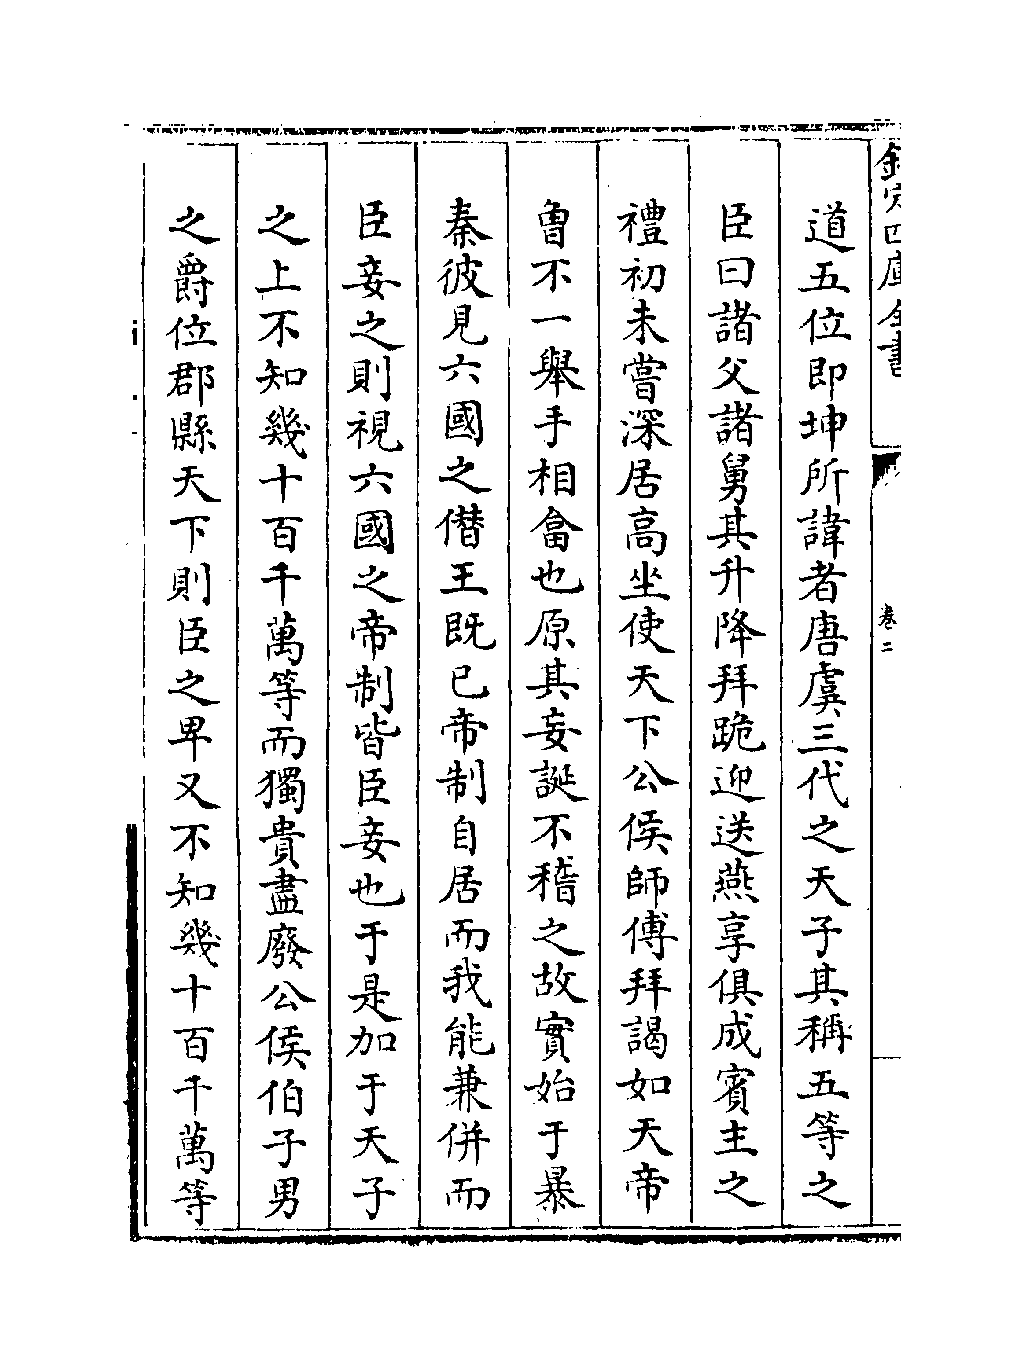 欽定四庫全書
卷二
道五位即坤所諱者唐虞三代之天子其稱五等之
臣曰諸父諸舅其升降拜跪迎送燕享俱成賓主之
禮初未嘗深居高坐使天下公侯師傅拜謁如天帝
曾不一舉手相畣也原其妄誕不稽之故實始于暴
秦彼見六國之僭王既已帝制自居而我能兼併而
臣妾之則視六國之帝制皆臣妾也于是加于天子
之上不知幾十百千萬等而獨貴盡廢公侯伯子男
之爵位郡縣天下則臣之卑又不知幾十百千萬等